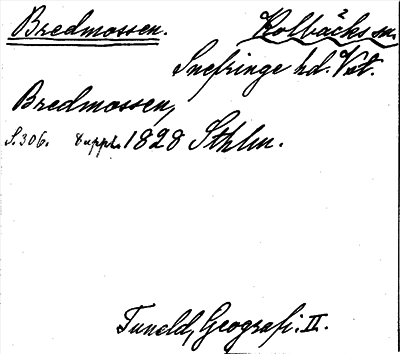 Bredmossen. Kolbäcks sn.
Snefringe hd. Vst.
Bredmossen,
S. 306. 8 uppl. 1828 Sthlm.
Tuneld, Geografi. II.